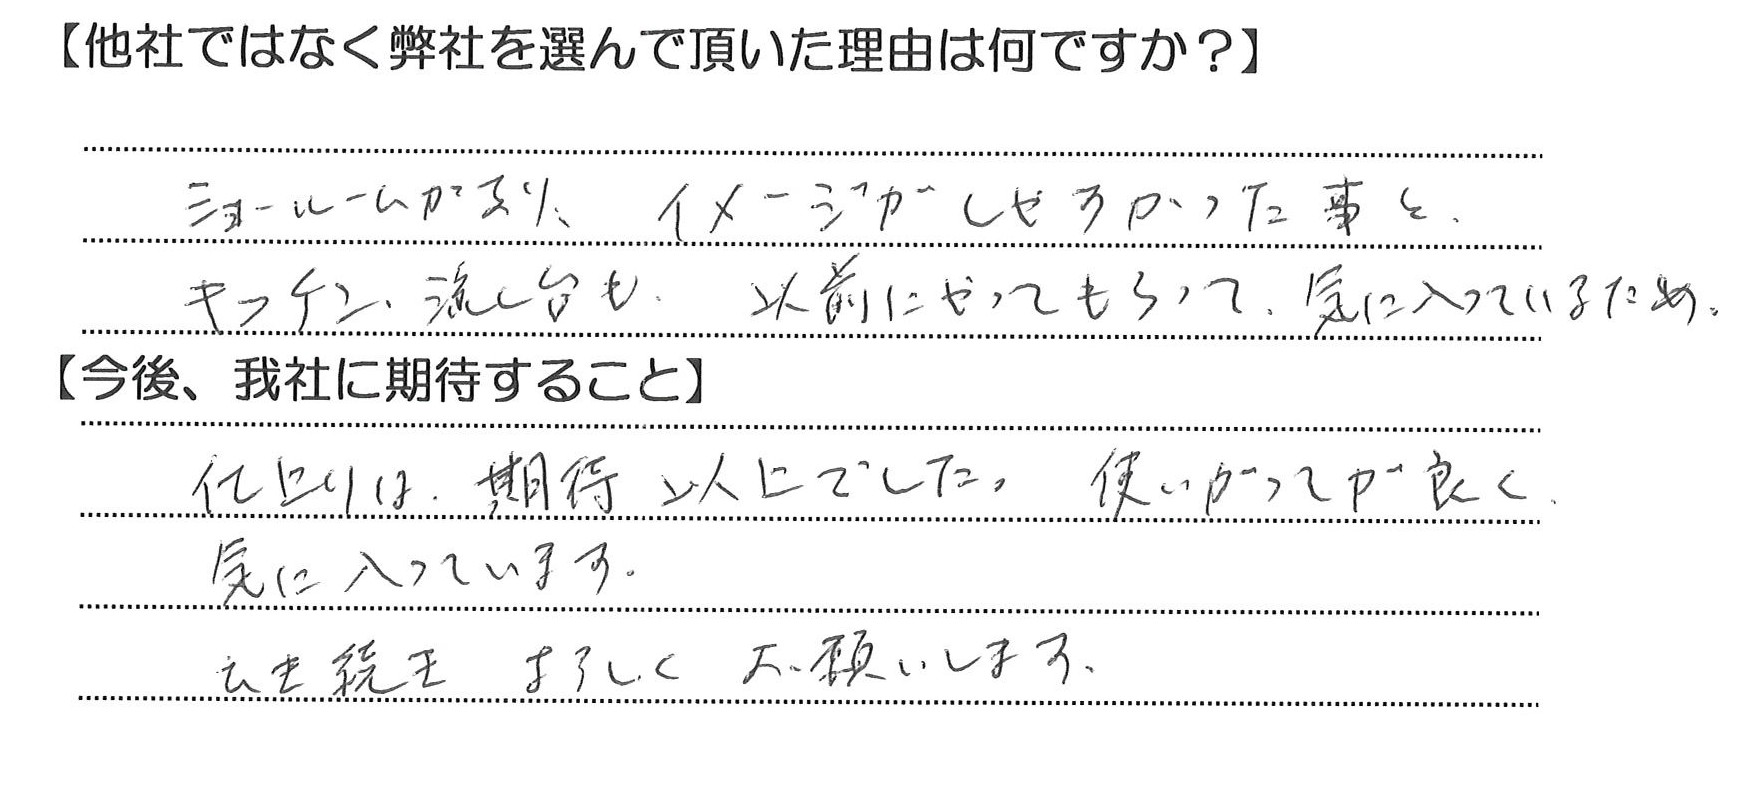 【他社ではなく弊社を選んで頂いた理由は何ですか？】
ショールームがあり、イメージがしやすかった事と、
キッチン、流し台も、以前にやってもらって、気に入っているため。
【今後、我社に期待すること】
仕上りは、期待以上でした。使いがってが良く、
気に入っています。
ひき続き よろしく お願いします。